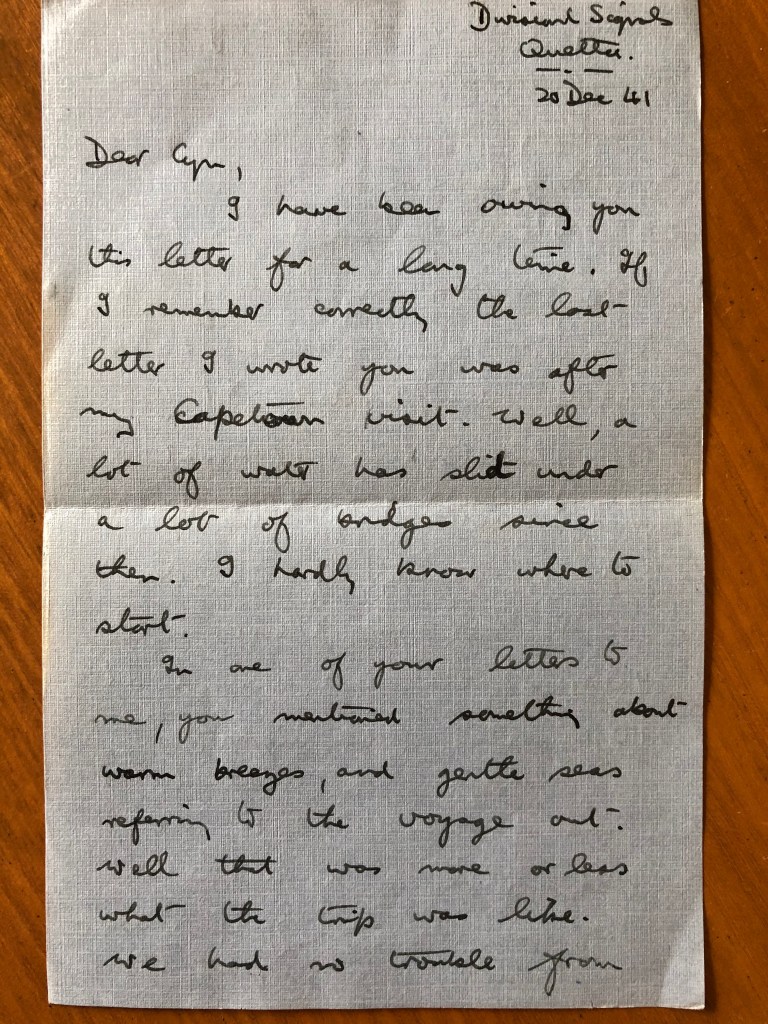 Divisional Signals
Quetta.
20 Dec 41
Dear Cyn,
I have been owing you
this letter for a long time. If
I remember correctly the last
letter I wrote you was after
my Capetown visit. Well, a
lot of water has slid under
a lot of bridges since
then. I hardly know where to
start.
In one of your letters to
me, you mentioned something about
warm breezes, and gentle seas
referring to the voyage out.
Well that was more or less
what the trip was like.
We had no trouble from